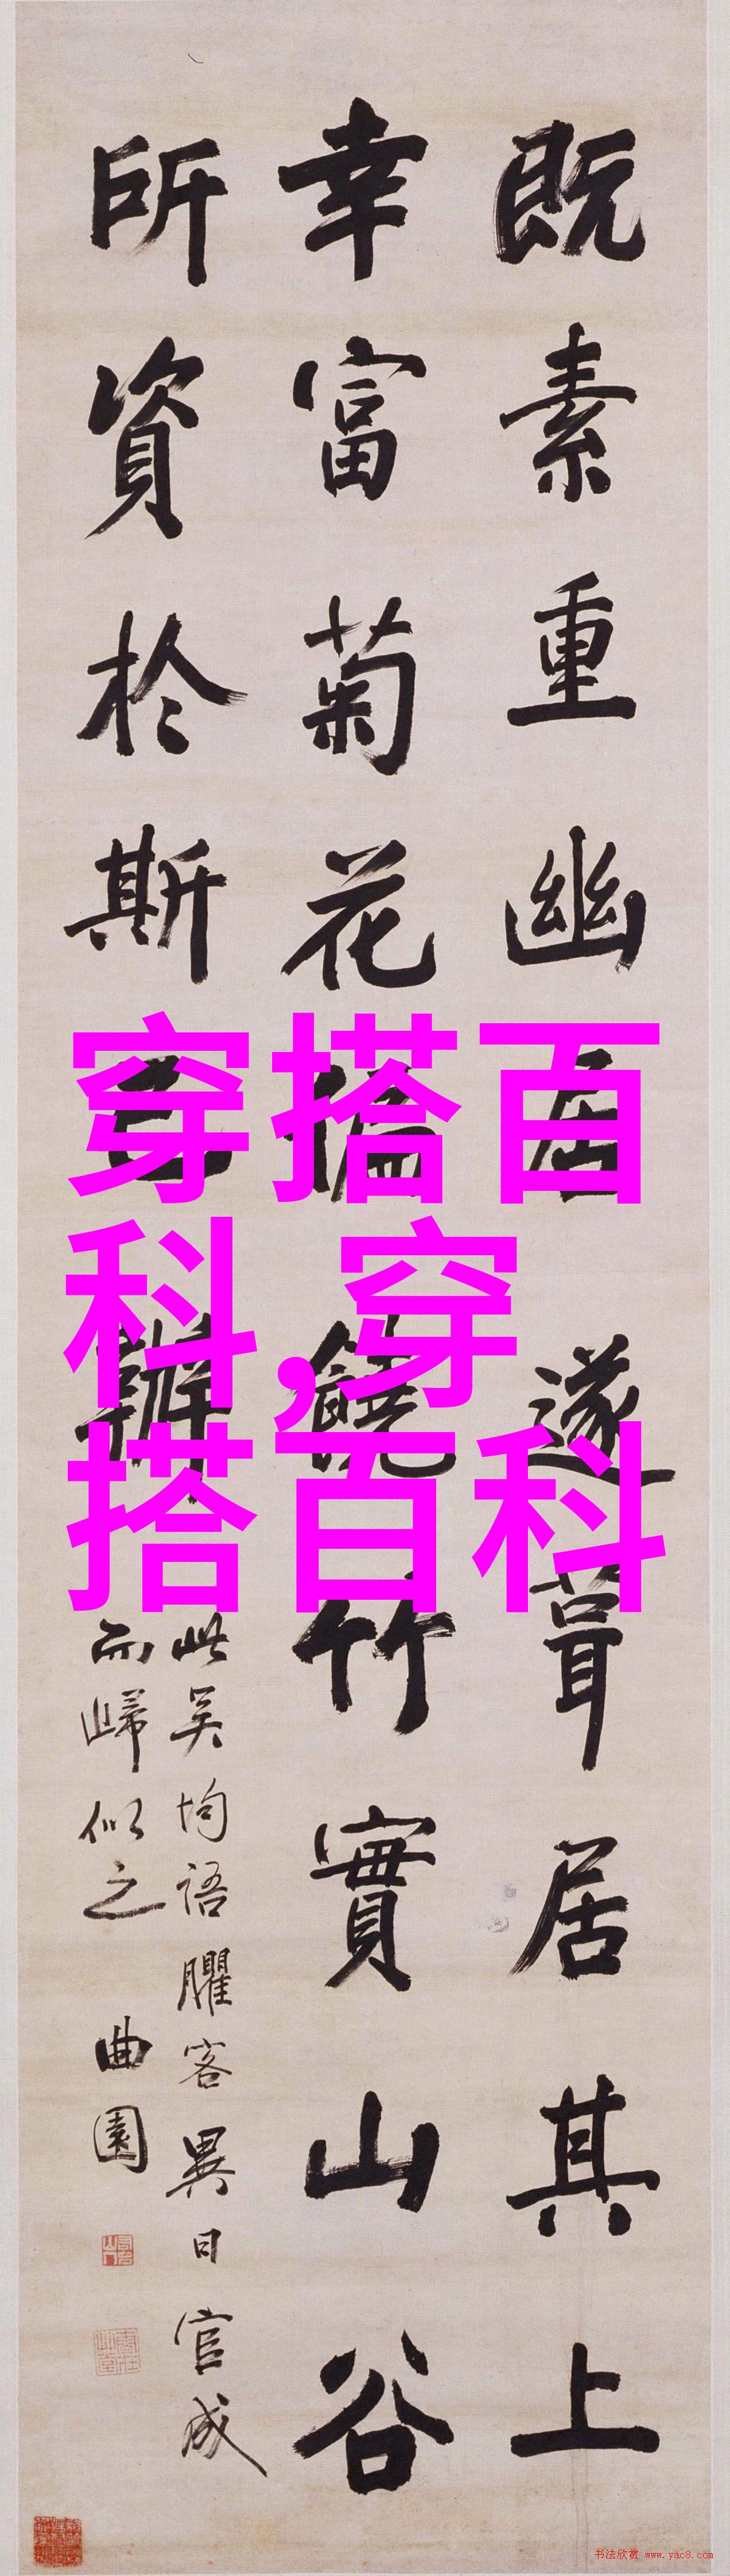 既素重幽居遂葺居其上
幸富菊花偏饒竹實山谷
所資於斯已辦
此吴均語臞客異日官成
而歸似之
曲園
穿搭百
科,穿
搭百科
书法欣赏 www.yac8.com